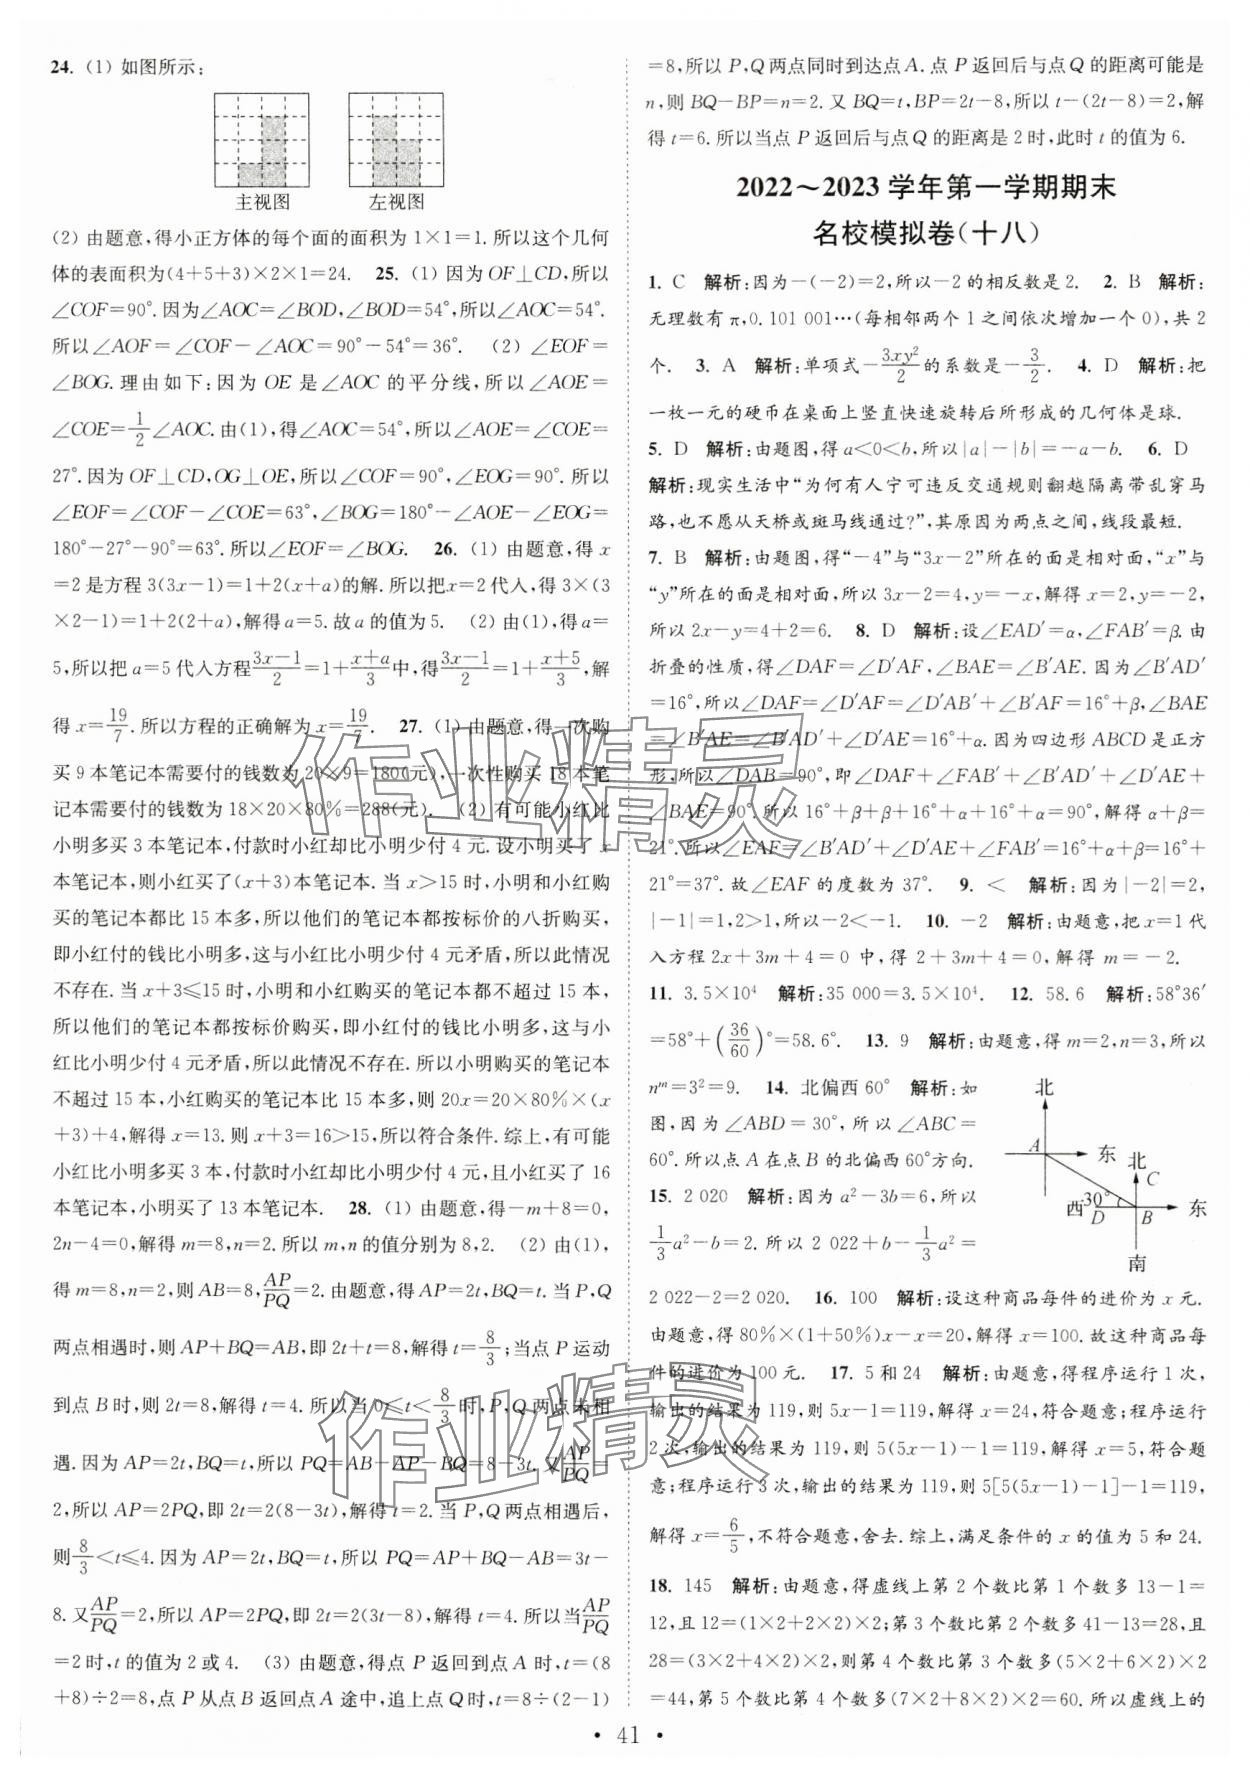 24. (1) 如图所示:
主视图 左视图
(2) 由题意,得小正方体的每个面的面积为 1×1=1. 所以这个几何
体的表面积为(4+5+3)×2×1=24. 25. (1) 因为 OF⊥CD,所以
∠COF=90°. 因为∠AOC=∠BOD,∠BOD=54°,所以∠AOC=54°.
所以∠AOF=∠COF-∠AOC=90°-54°=36°. (2) ∠EOF=
∠BOG. 理由如下:因为 OE 是∠AOC 的平分线,所以∠AOE=
∠COE=1/2∠AOC. 由(1),得∠AOC=54°,所以∠AOE=∠COE=
27°. 因为 OF⊥CD,OG⊥OE,所以∠COF=90°,∠EOG=90°. 所以
∠EOF=∠COF-∠COE=63°,∠BOG=180°-∠AOE-∠EOG=
180°-27°-90°=63°. 所以∠EOF=∠BOG. 26. (1) 由题意,得 x
=2是方程 3(3x-1)=1+2(x+a)的解. 所以把x=2代入,得 3×(3
×2-1)=1+2(2+a),解得a=5. 故a的值为 5. (2) 由(1),得a=
5,所以把 a=5代入方程(3x-1)/2=1+(x+a)/3中,得(3x-1)/2=1+(x+5)/3,解
得 x=19/7. 所以方程的正确解为 x=19/7. 27. (1) 由题意,得一次购
买 9 本笔记本需要付的钱数为 20×9=180(元),一次性购买 18 本笔
记本需要付的钱数为 18×20×80%=288(元). (2) 有可能小红比
小明多买 3 本笔记本,付款时小红却比小明少付 4 元. 设小明买了 x
本笔记本,则小红买了(x+3)本笔记本. 当 x>15 时,小明和小红购
买的笔记本都比 15 本多,所以他们的笔记本都按标价的八折购买,
即小红付的钱比小明多,这与小红比小明少付 4 元矛盾,所以此情况
不存在. 当 x+3≤15 时,小明和小红购买的笔记本都不超过 15 本,
所以他们的笔记本都按标价购买,即小红付的钱比小明多,这与小
红比小明少付 4 元矛盾,所以此情况不存在. 所以小明购买的笔记本
不超过 15 本,小红购买的笔记本比 15 本多,则 20x=20×80%×(x
+3)+4,解得 x=13. 则 x+3=16>15,所以符合条件. 综上,有可能
小红比小明多买 3 本,付款时小红却比小明少付 4 元,且小红买了 16
本笔记本,小明买了 13 本笔记本. 28. (1) 由题意,得-m+8=0,
2n-4=0,解得 m=8,n=2. 所以 m,n 的值分别为 8,2. (2) 由(1),
得 m=8,n=2,则 AB=8,AP/PQ=2. 由题意,得 AP=2t,BQ=t. 当 P,Q
两点相遇时,则 AP+BQ=AB,即 2t+t=8,解得 t=8/3;当点 P 运动
到点 B 时,则 2t=8,解得 t=4. 所以当 0≤t<8/3 时,P,Q 两点未相
遇. 因为 AP=2t,BQ=t,所以 PQ=AB-AP-BQ=8-3t. 又AP/PQ=
2,所以 AP=2PQ,即 2t=2(8-3t),解得 t=2. 当 P,Q 两点相遇后,
则8/3<t≤4. 因为 AP=2t,BQ=t,所以 PQ=AP+BQ-AB=3t-
8. 又AP/PQ=2,所以 AP=2PQ,即 2t=2(3t-8),解得 t=4. 所以当AP/PQ
=2 时,t 的值为 2 或 4. (3) 由题意,得点 P 返回到点 A 时,t=(8
+8)÷2=8,点 P 从点 B 返回点 A 途中,追上点 Q时,t=8÷(2-1)
=8,所以 P,Q 两点同时到达点 A. 点 P 返回后与点 Q 的距离可能是
n,则 BQ-BP=n=2. 又 BQ=t,BP=2t-8,所以 t-(2t-8)=2,解
得 t=6. 所以当点 P 返回后与点 Q 的距离是 2 时,此时 t 的值为 6.
2022～2023 学年第一学期期末
名校模拟卷(十八)
1. C 解析:因为-(-2)=2,所以-2的相反数是 2. 2. B 解析:
无理数有 π,0.101 001…(每相邻两个 1 之间依次增加一个 0),共 2
个. 3. A 解析:单项式-3xy²/2的系数是-3/2. 4. D 解析:把
一枚一元的硬币在桌面上竖直快速旋转后所形成的几何体是球.
5. D 解析:由题图,得 a<0<b,所以|a|-|b|=-a-b. 6. D
解析:现实生活中“为何有人宁可违反交通规则翻越隔离带乱穿马
路,也不愿从天桥或斑马线通过?”,其原因为两点之间,线段最短.
7. B 解析:由题图,得“-4”与“3x-2”所在的面是相对面,“x”与
“y”所在的面是相对面,所以 3x-2=4,y=-x,解得 x=2,y=-2,
所以 2x-y=4+2=6. 8. D 解析:设∠EAD′=α,∠FAB′=β. 由
折叠的性质,得∠DAF=∠D′AF,∠BAE=∠B′AE. 因为∠B′AD′
=16°,所以∠DAF=∠D′AF=∠D′AB′+∠B′AF=16°+β,∠BAE
=∠B′AE=∠B′AD′+∠D′AE=16°+α. 因为四边形ABCD是正方
形,所以∠DAB=90°,即∠DAF+∠FAB′+∠B′AD′+∠D′AE+
∠BAE=90°. 所以 16°+β+β+16°+α+16°+α=90°,解得 α+β=
21°. 所以∠EAF=∠B′AD′+∠D′AE+∠FAB′=16°+α+β=16°+
21°=37°. 故∠EAF 的度数为 37°. 9. < 解析:因为|-2|=2,
|-1|=1,2>1,所以-2<-1. 10. -2 解析:由题意,把 x=1代
入方程 2x+3m+4=0 中,得 2+3m+4=0,解得 m=-2.
11. 3.5×10⁴ 解析:35 000=3.5×10⁴. 12. 58.6 解析:58°36′
=58°+(36/60)°=58.6°. 13. 9 解析:由题意,得 m=2,n=3,所以
nᵐ=3²=9. 14. 北偏西 60° 解析:如
图,因为∠ABD=30°,所以∠ABC=
60°. 所以点 A 在点 B 的北偏西 60°方向.
北
A
东
北
C
西
30°
D
B
东
南
15. 2 020 解析:因为 a²-3b=6,所以
1/3a²-b=2. 所以 2 022+b-1/3a²=
2 022-2=2 020. 16. 100 解析:设这种商品每件的进价为 x 元.
由题意,得 80%×(1+50%)x-x=20,解得 x=100. 故这种商品每
件的进价为 100 元. 17. 5 和 24 解析:由题意,得程序运行 1 次,
输出的结果为 119,则 5x-1=119,解得 x=24,符合题意;程序运行
2 次,输出的结果为 119,则 5(5x-1)-1=119,解得 x=5,符合题
意;程序运行3次,输出的结果为 119,则 5[5(5x-1)-1]-1=119,
解得 x=6/5,不符合题意,舍去. 综上,满足条件的 x 的值为 5 和 24.
18. 145 解析:由题意,得虚线上第 2 个数比第 1 个数多 13-1=
12,且 12=(1×2+2×2)×2;第 3 个数比第 2 个数多 41-13=28,且
28=(3×2+4×2)×2,则第 4 个数比第 3 个数多(5×2+6×2)×2
=44,第 5 个数比第 4 个数多(7×2+8×2)×2=60. 所以虚线上的
• 41 •
作业精灵
作业精灵